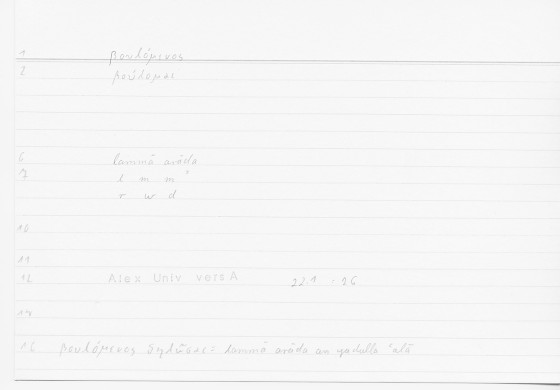 1 βουλόμενος
2 βούλομαι
6 lammā arāda
7 l m m ᵓ
r w d
10
11
12 Alex Univ vers A 221 . 26
14
16 βουλόμενος δηλῶσαι = lammā arāda an yadulla ʿalā